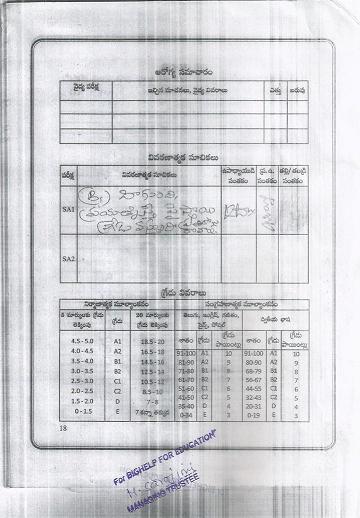 ఆరోగ్య సమాచారం
వైద్య పరీక్ష ఇచ్చిన సూచనలు, వైద్య వివరాలు ఎత్తు బరువు
వివరణాత్మక సూచికలు
పరీక్ష వివరణాత్మక సూచికలు ఉపాధ్యాయుడి సంతకం ప్ర.ఉ. సంతకం తల్లి/తండ్రి సంతకం
SA1 బాగుంది,
SA2
గ్రేడు వివరాలు
నిర్మాణాత్మక మూల్యాంకనం సంగ్రహణాత్మక మూల్యాంకనం
5 మార్కులకు లెక్కింపు గ్రేడు 20 మార్కులకు గ్రేడు లెక్కింపు తెలుగు, ఇంగ్లిష్, గణితం, సైన్స్, సోషల్ ద్వితీయ భాష
శాతం గ్రేడు గ్రేడు పాయింట్లు శాతం గ్రేడు గ్రేడు పాయింట్లు
4.5 - 5.0 A1 18.5 - 20 91-100 A1 10 91-100 A1 10
4.0 - 4.5 A2 16.5 - 18 81-90 A2 9 80-90 A2 9
3.5 - 4.0 B1 14.5 - 16 71-80 B1 8 68-79 B1 8
3.0 - 3.5 B2 12.5 - 14 61-70 B2 7 56-67 B2 7
2.5 - 3.0 C1 10.5 - 12 51-60 C1 6 44-55 C1 6
2.0 - 2.5 C2 8.5 - 10 41-50 C2 5 32-43 C2 5
1.5 - 2.0 D 7 - 8 35-40 D 4 20-31 D 4
0 - 1.5 E 7 కన్నా తక్కువ 0-34 E 3 0-19 E 3
18
For BIGHELP FOR EDUCATION
MANAGING TRUSTEE